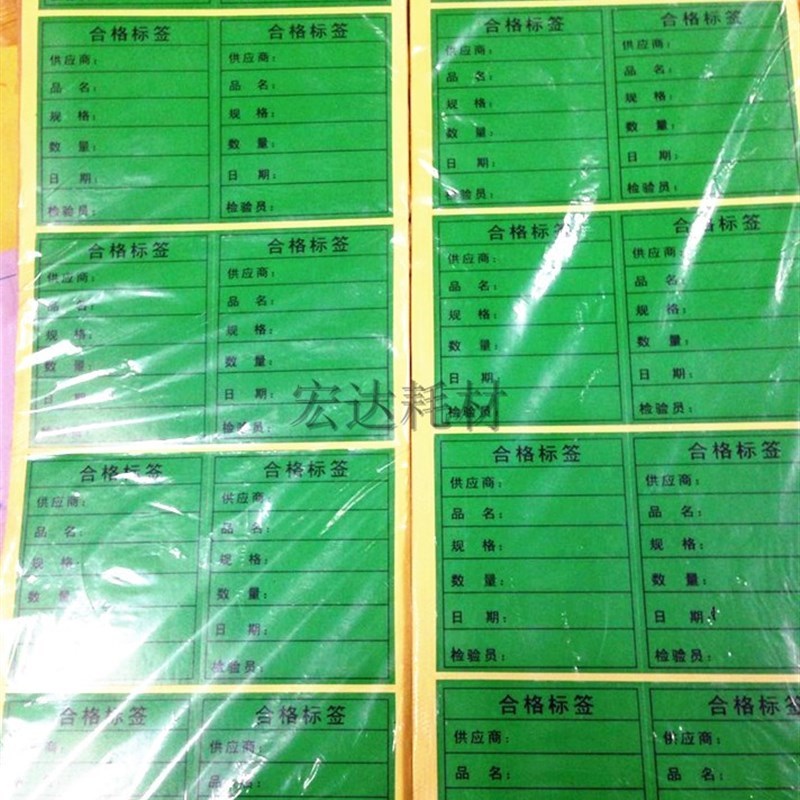 合格标签 合格标签
供应商： 供应商：
品 名： 品 名：
规 格： 规 格：
数 量： 数 量：
日 期： 日 期：
检验员： 检验员：
合格标签 合格标签
供应商： 供应商：
品 名： 品 名：
规 格： 规 格：
数 量： 数 量：
日 期： 日 期：
检验员： 检验员：
合格标签 合格标签
供应商： 供应商：
品 名： 品 名：
规 格： 规 格：
数 量： 数 量：
日 期： 日 期：
检验员： 检验员：
合格标签 合格标签
供应商：
品 名：
合格标签 合格标签
供应商： 供应商：
品 名： 品 名：
规 格： 规 格：
数 量： 数 量：
日 期： 日 期：
检验员： 检验员：
合格标签 合格标签
供应商： 供应商：
品 名： 品 名：
规 格： 规 格：
数 量： 数 量：
日 期： 日 期：
检验员： 检验员：
合格标签 合格标签
供应商： 供应商：
品 名： 品 名：
规 格： 规 格：
数 量： 数 量：
日 期： 日 期：
检验员： 检验员：
合格标签 合格标签
供应商： 供应商：
品 名： 品 名：
宏达耗材